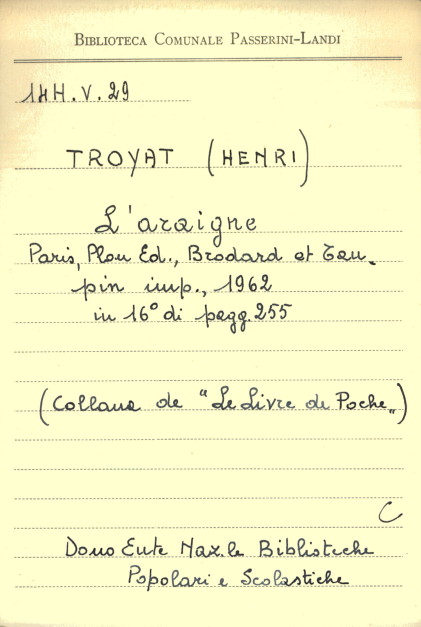 BIBLIOTECA COMUNALE PASSERINI-LANDI
1HH.V.29
TROYAT (HENRI)
L'araigne
Paris, Plon Ed., Brodard et Tau-
pin imp., 1962
in 16° di pagg. 255
(Collana de "Le Livre de Poche")
C
Dono Ente Naz.le Biblioteche
Popolari e Scolastiche